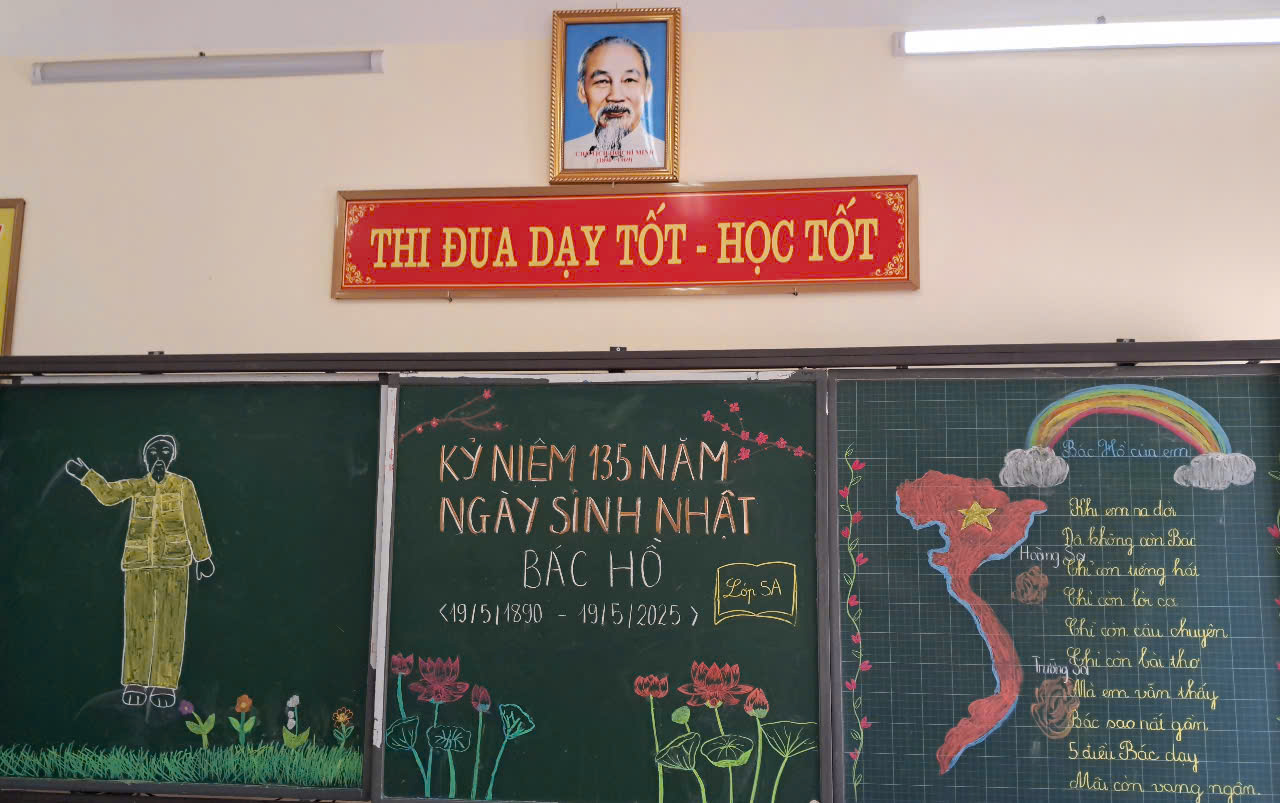 CHỦ TỊCH HỒ CHÍ MINH
(1890 - 1969)
THI ĐUA DẠY TỐT - HỌC TỐT
KỶ NIỆM 135 NĂM
NGÀY SINH NHẬT
BÁC HỒ
<19/5/1890 - 19/5/2025>
Lớp 5A
Bác Hồ của em
Khi em ra đời
Đã không còn Bác
Chỉ còn tiếng hát
Chỉ còn lời ca
Chỉ còn câu chuyện
Chỉ còn bài thơ
Mà em vẫn thấy
Bác sao rất gần
5 điều Bác dạy
Mãi còn vang ngân.
Hoàng Sa
Trường Sa